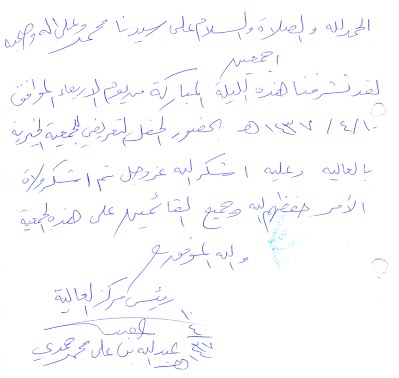 الحمد لله والصلاة والسلام على سيدنا محمد وعلى اله وصحبه
اجمعين
لقد تشرفنا هذه الليلة المباركة من يوم الاربعاء الموافق
١٤٣٧/٤/١٠ هـ بحضور الحفل التعريفي للجمعية الخيرية
بالعاليه وعليه اشكر الله عز وجل ثم اشكر ولاة
الأمر حفظهم الله وجميع القائمين على هذه الجمعية
والله الموفق
رئيس مركز العالية
عبدالله بن علي محمد حمدي